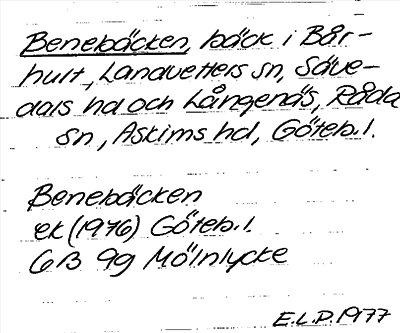 Benebäcken, bäck i Bår-
hult, Landvetters sn, Säve-
dals hd och Långenäs, Råda
sn, Askims hd, Göteb.l.
Benebäcken
ek (1976) Göteb.l.
6B 9g Mölnlycke
E.L.D. 1977